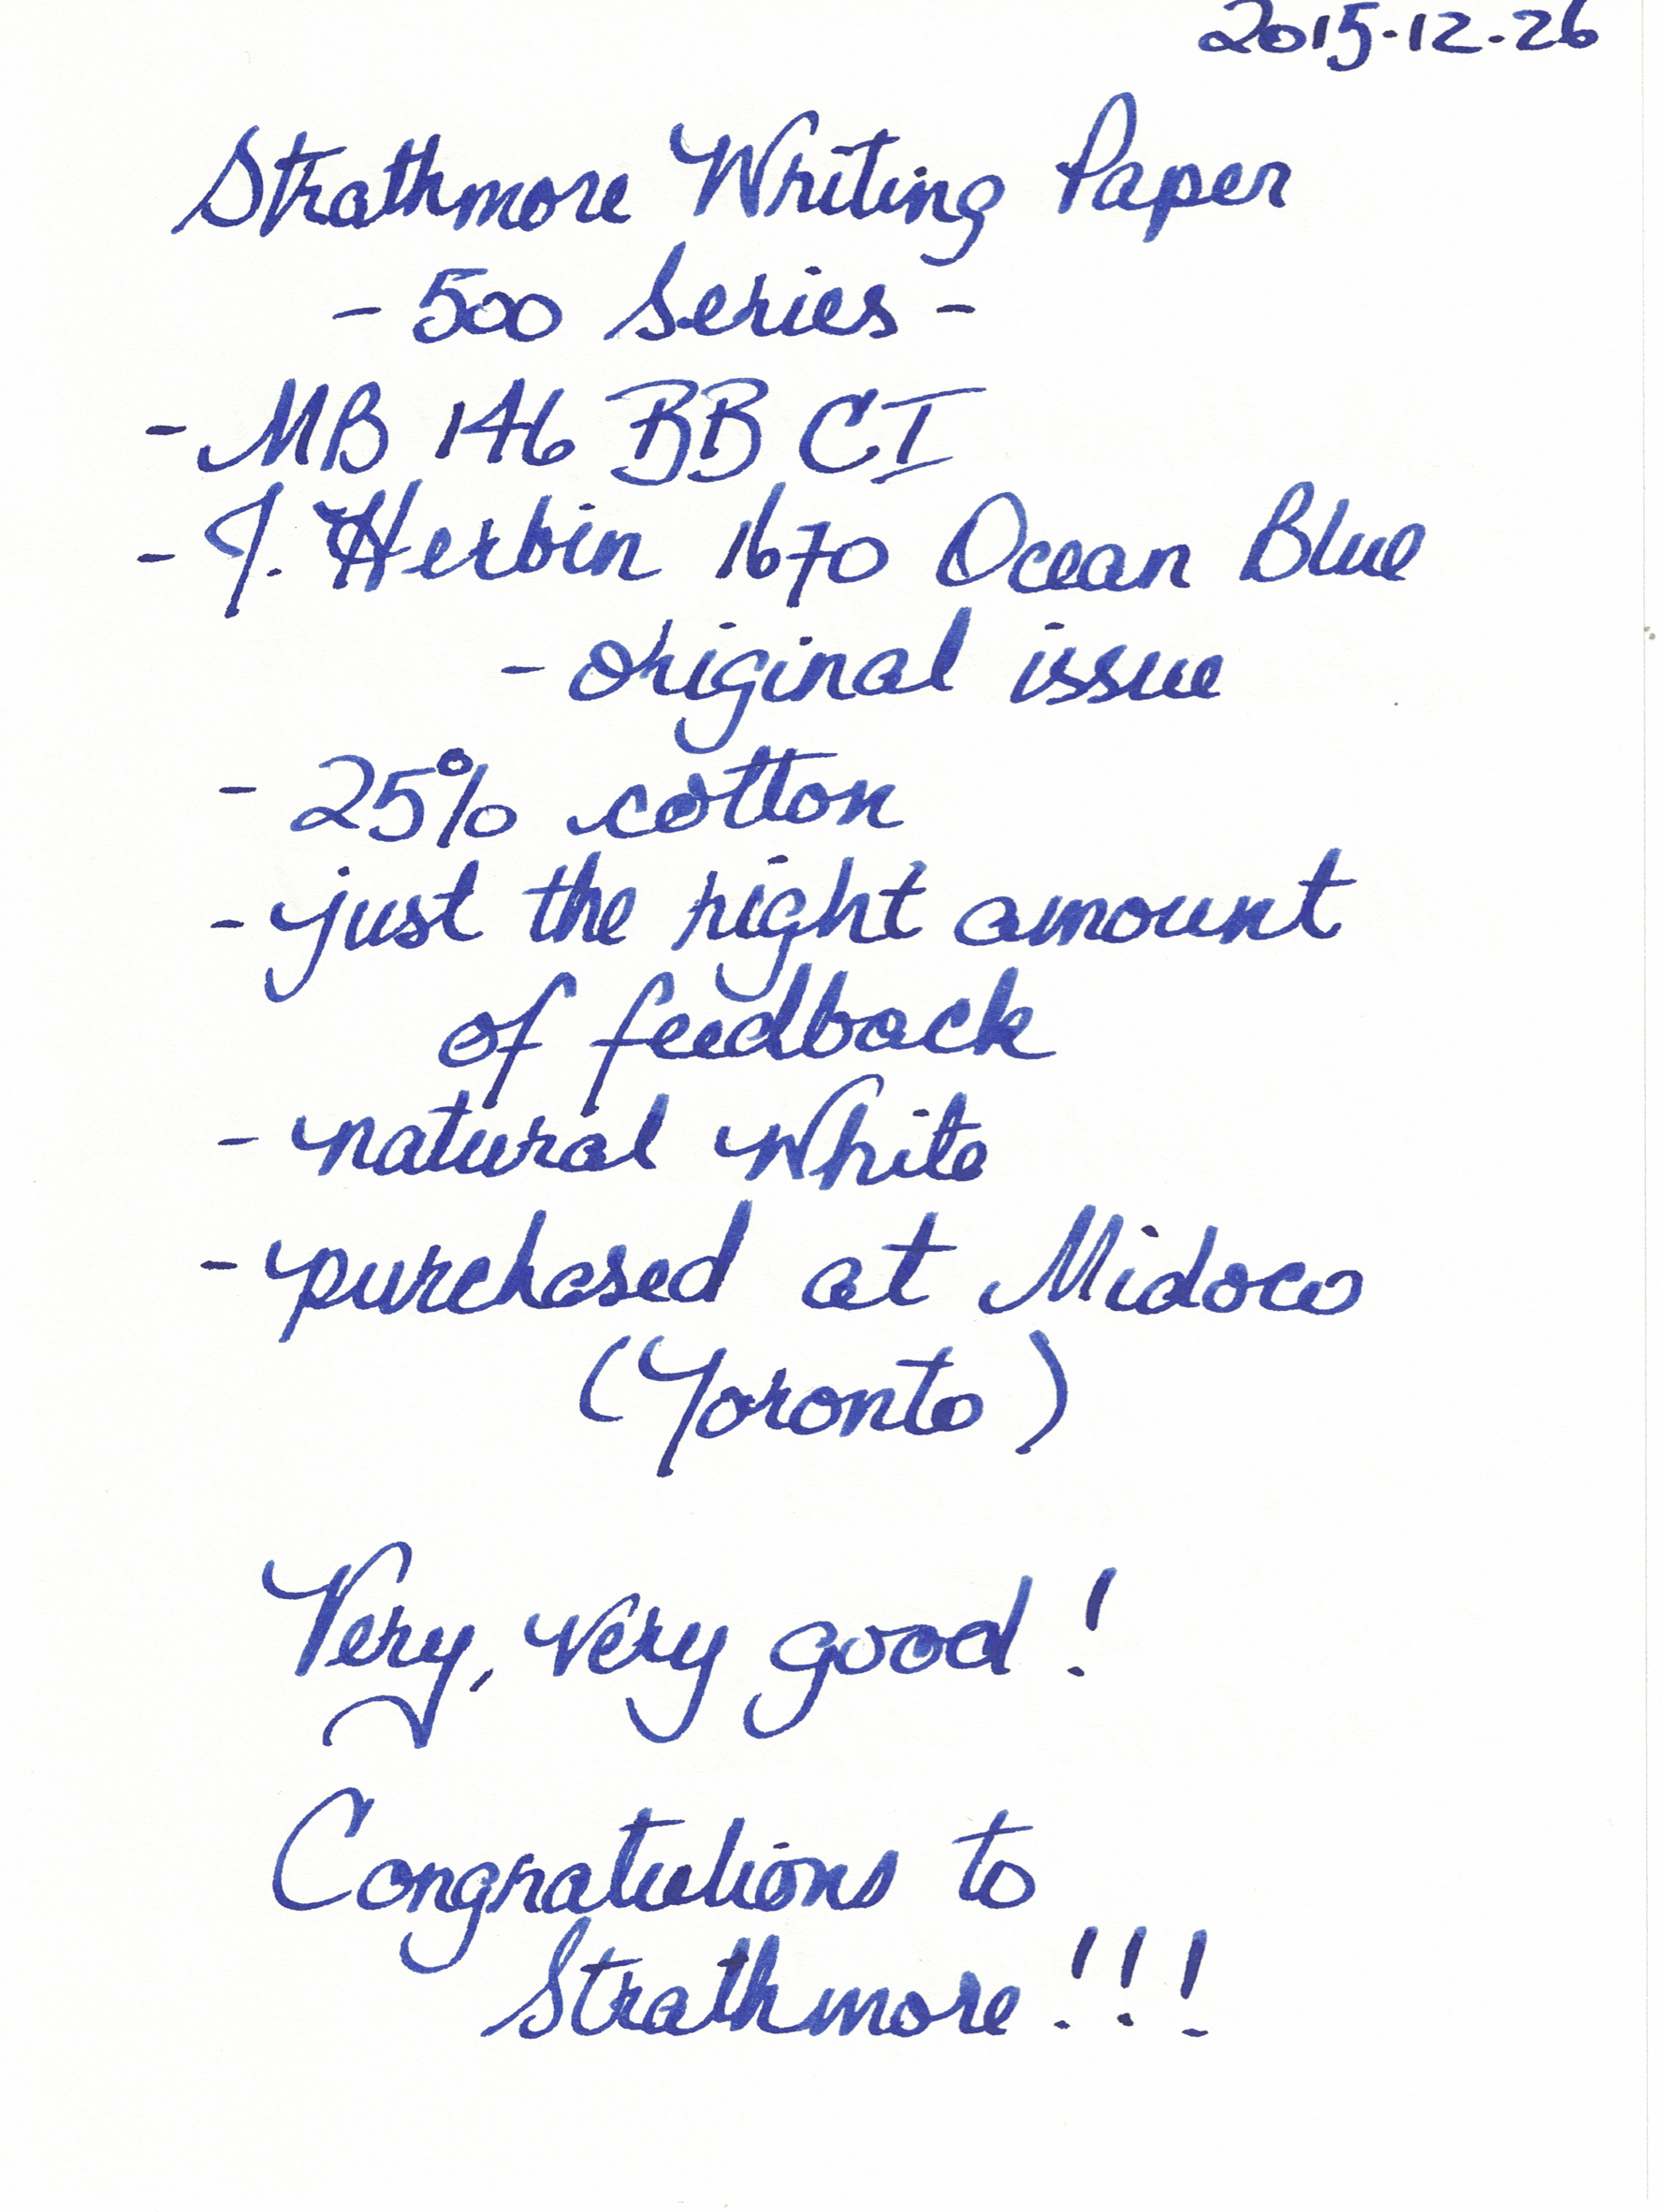 2015-12-26
Strathmore Writing Paper
- 500 Series -
- MB 146 BB CI
- J. Herbin 1670 Ocean Blue
- original issue
- 25% cotton
- just the right amount
of feedback
- natural White
- purchased at Midoco
(Toronto)
Very, very good!
Congratulions to
Strathmore!!!